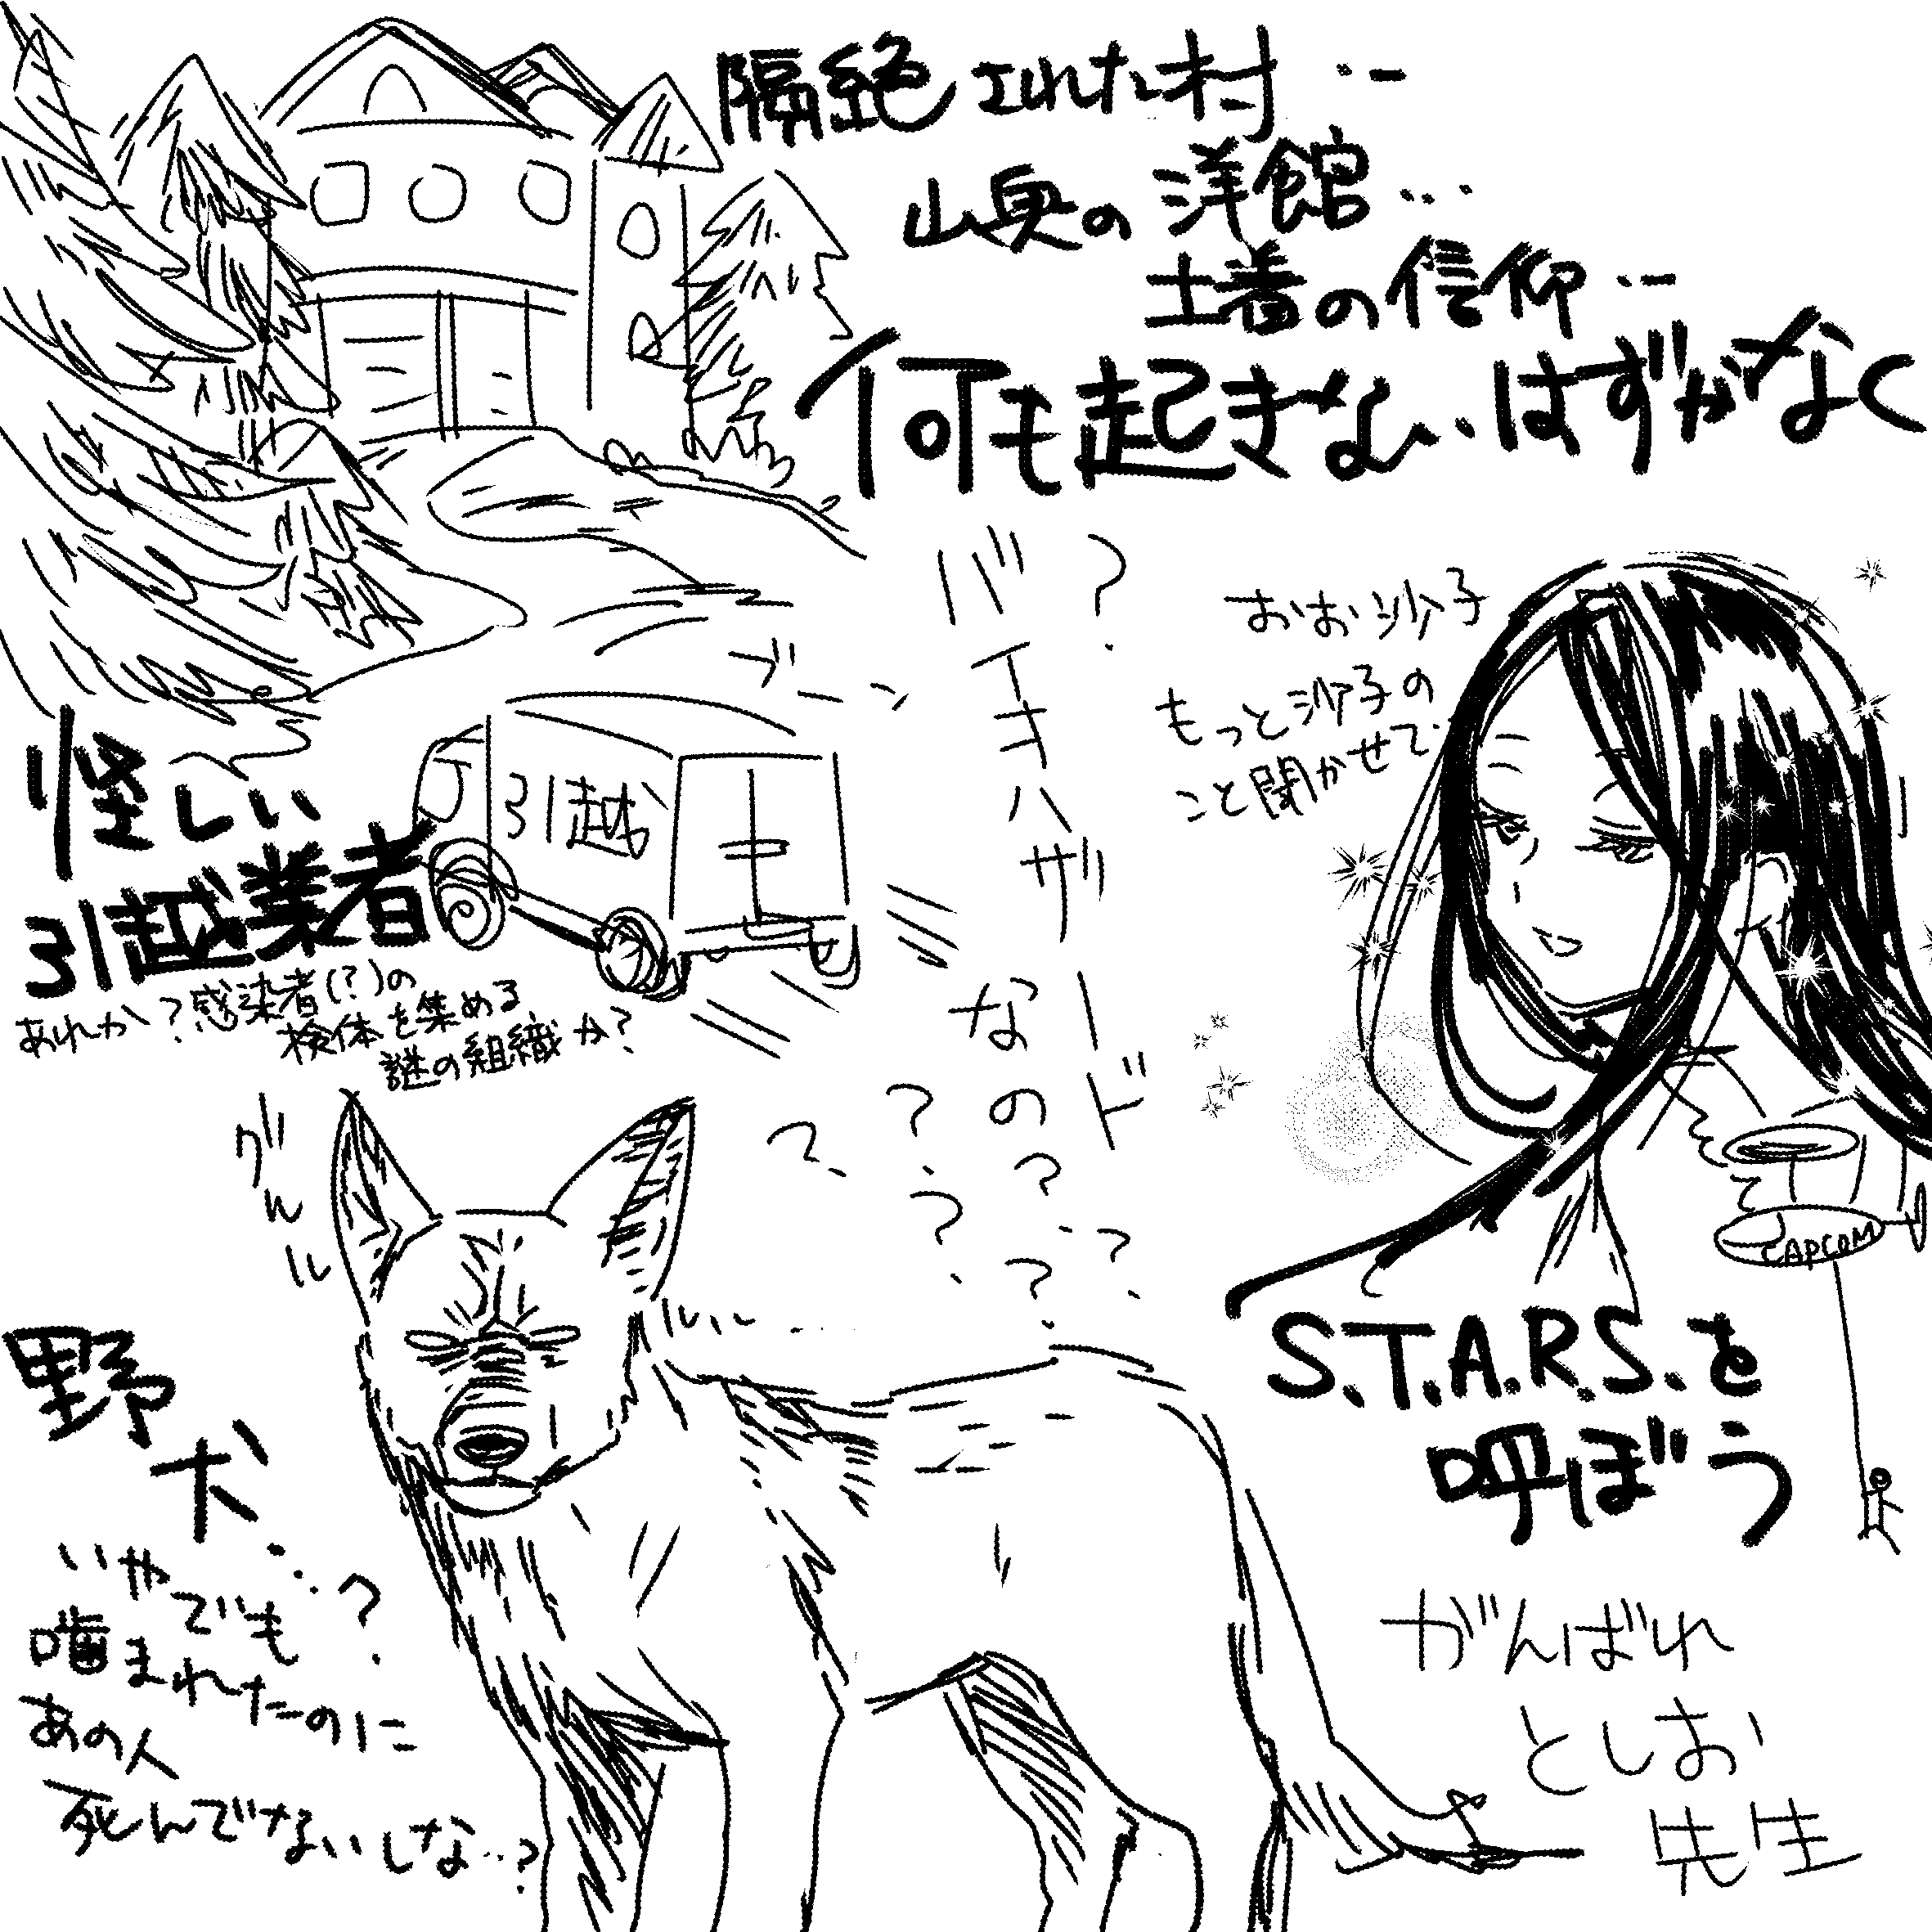 隔絶された村…
山奥の洋館…
土着の信仰…
何も起きないはずがなく
ブーン
引越
怪しい
引越業者
あれか?感染者(?)の
検体を集める
謎の組織か?
バイオハザード
なの????????
おお沙子
もっと沙子の
こと聞かせて
CAPCOM
S.T.A.R.S.を
呼ぼう
がんばれ
としお
先生
ぐるる
るい…
野犬…?
いやでも
噛まれたのに
あの人
死んでないしな…?